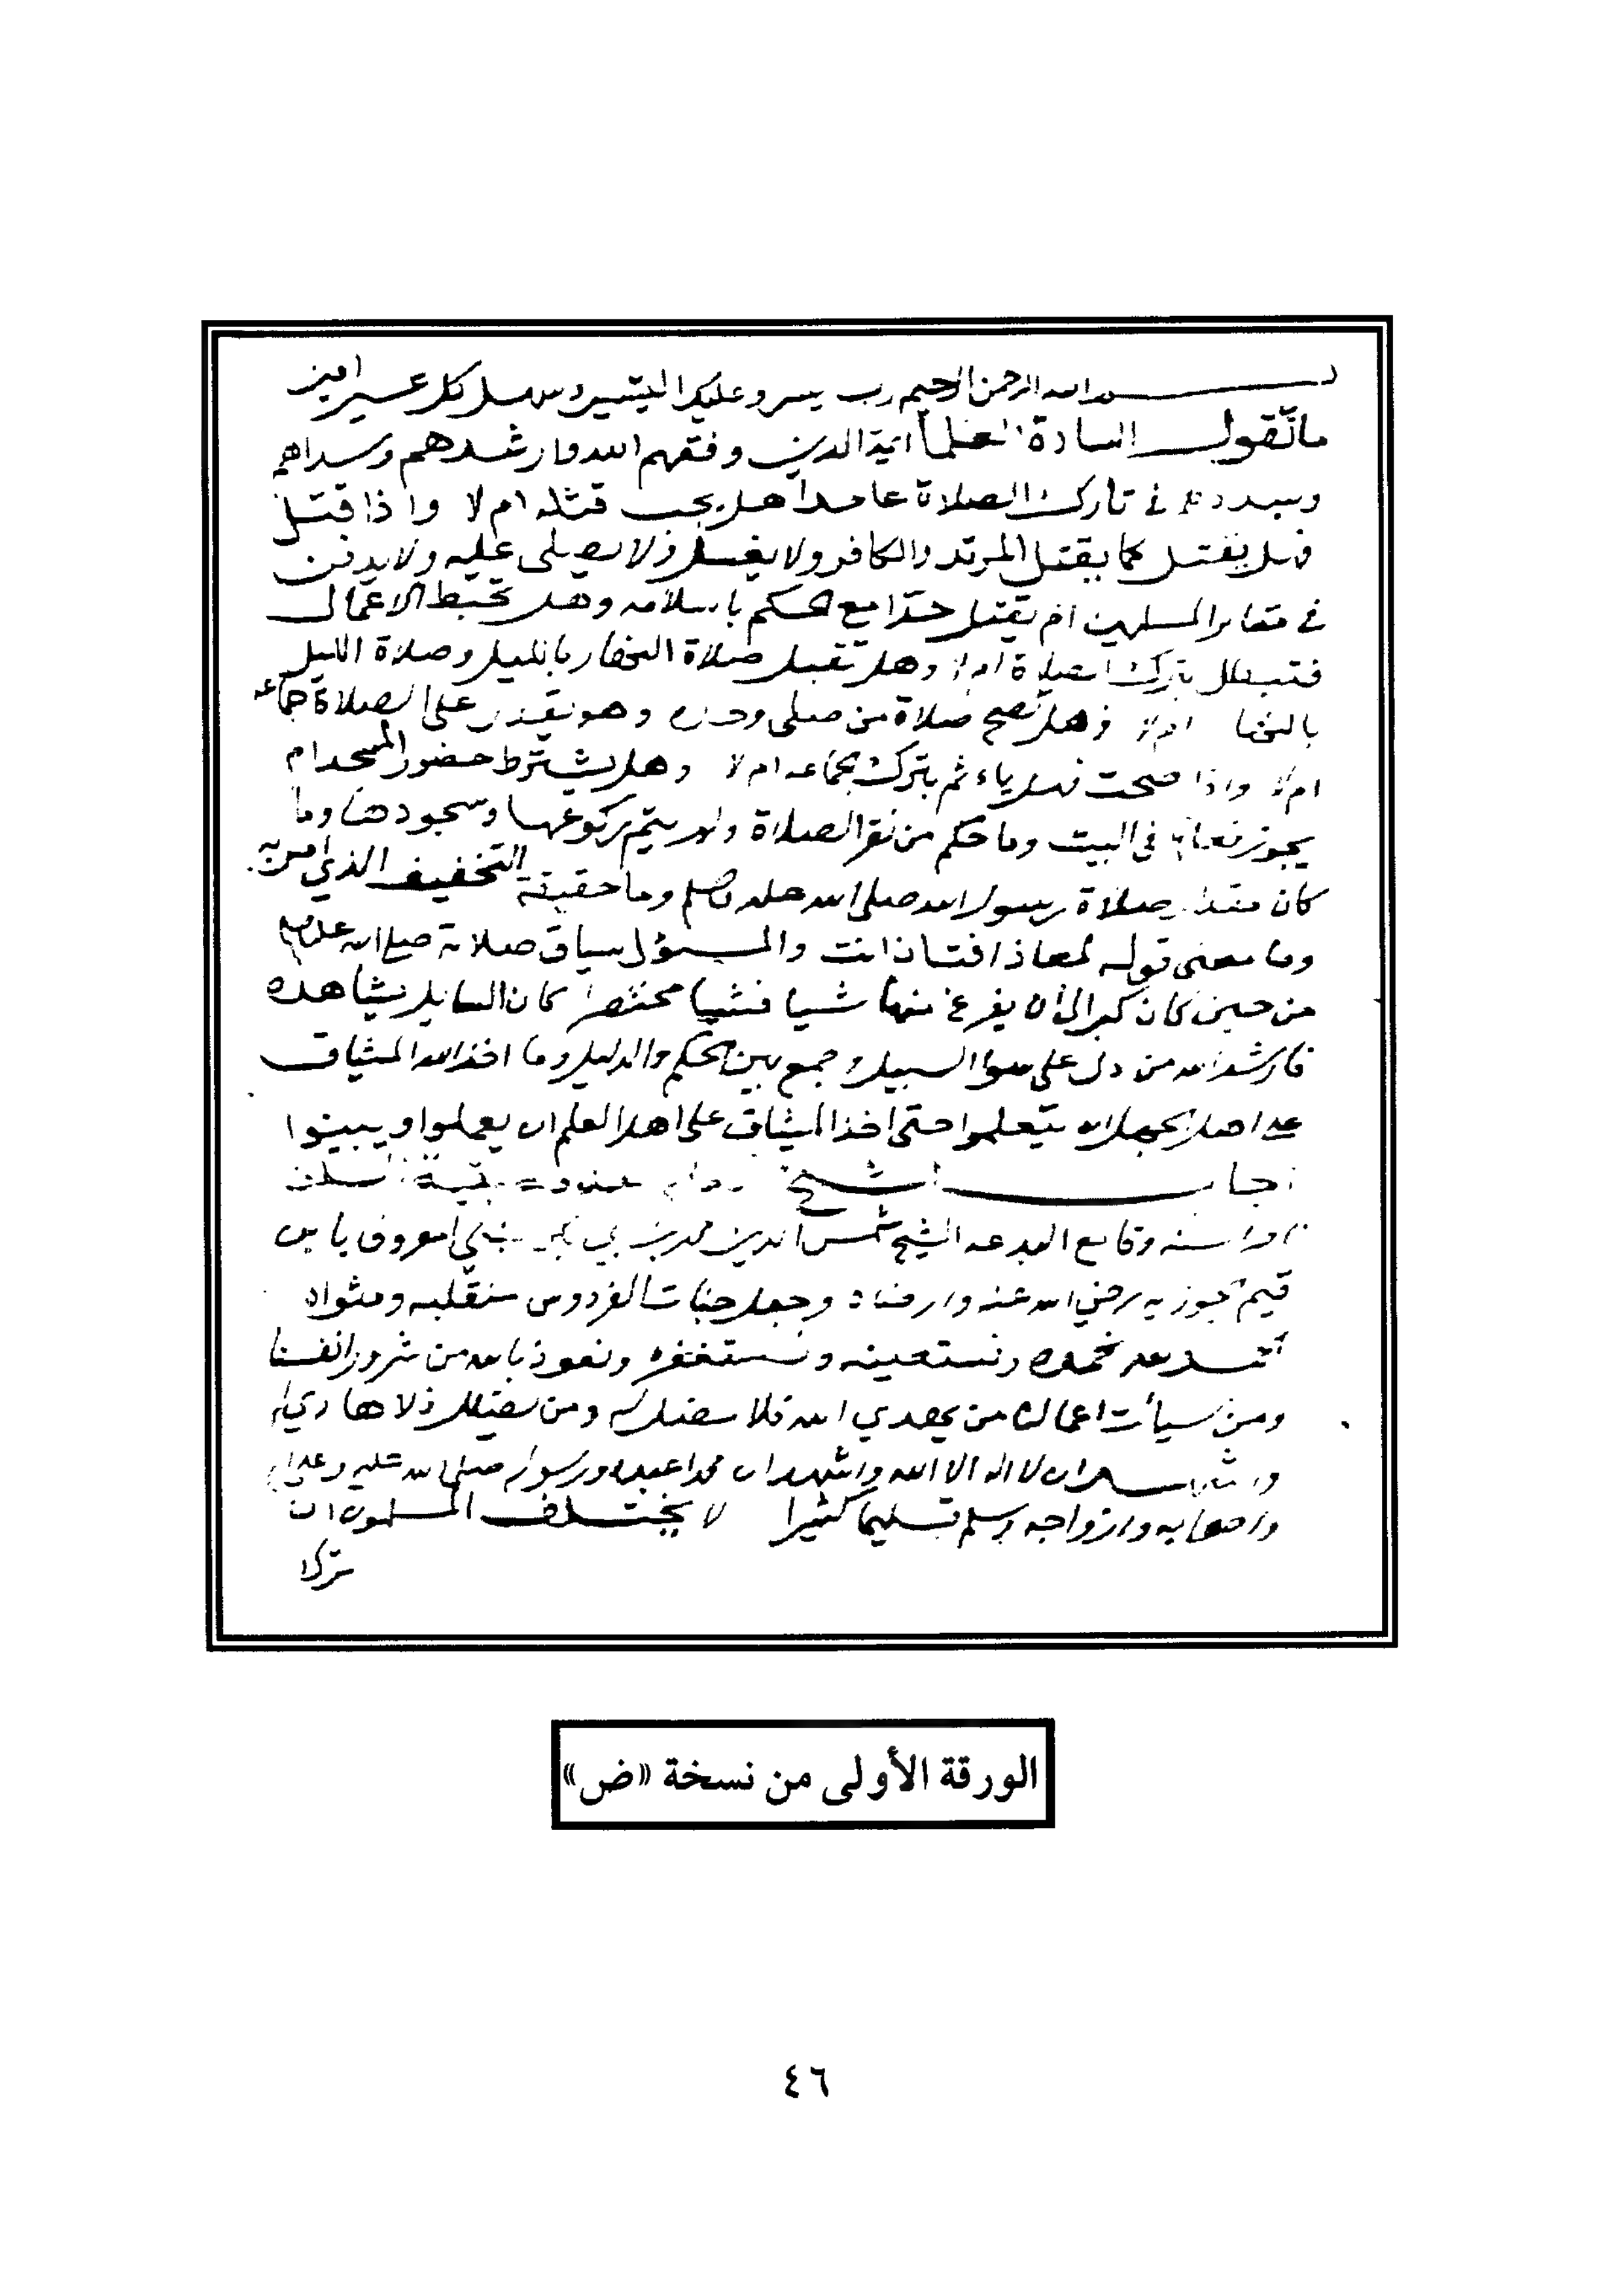 بسم الله الرحمن الرحيم رب يسر وعليك التيسير وسهل كل عسير امين
ما تقول السادة العلما ايمة الدين وفقهم الله وارشدهم وسداهم
وسددهم في تارك الصلاة عامدا هل يجب قتله ام لا واذا قتل
فهل يقتل كما يقتل المرتد والكافر ولا يغسل ولا يصلى عليه ولا يدفن
في مقابر المسلمين ام يقتل حدا مع الحكم باسلامه وهل تحبط الاعمال
فتبطل بترك الصلاة ام لا وهل تقبل صلاة النهار بالليل وصلاة الليل
بالنهار ام لا وهل تصح صلاة من صلى وحده وهو يقدر على الصلاة جماعه
ام لا واذا صحت فهل ياثم بترك الجماعه ام لا وهل يشترط حضور المسجد ام
يجوز فعلها في البيت وما حكم من نقر الصلاة ولم يتم ركوعها وسجودها وما
كان مقدار صلاة رسول الله صلى الله عليه وسلم وما حقيقة التخفيف الذي امر به
وما معنى قوله لمعاذ افتان انت والمسؤل سياق صلاته صلى الله عليه وسلم
من حين كان يكبر الى ان يفرغ منها شيا فشيا مختصرا كان السايل يشاهده
فارشد الله من دل على سوا السبيل وجمع بين الحكم والدليل وما اخذ الله الميثاق
على اهل الجهل ان يتعلموا حتى اخذ الميثاق على اهل العلم ان يعملوا ويبينوا
اجاب الشيخ بقية السلف
السنه وقامع البدعه الشيخ شمس الدين محمد بن ابي بكر الحنبلي المعروف بابن
قيم الجوزيه رضي الله عنه وارضاه وجعل جنات الفردوس منقلبه ومثواه
الحمد لله نحمده ونستعينه ونستغفره ونعوذ بالله من شرور انفسنا
ومن سيأت اعمالنا من يهدي الله فلا مضل له ومن يضلل فلا هادي له
واشهد ان لا اله الا الله واشهد ان محمدا عبده ورسوله صلى الله عليه وعلى اله
واصحابه وازواجه وسلم تسليما كثيرا لا يختلف المسلمون ان
ترك
الورقة الأولى من نسخة «ض»
٤٦